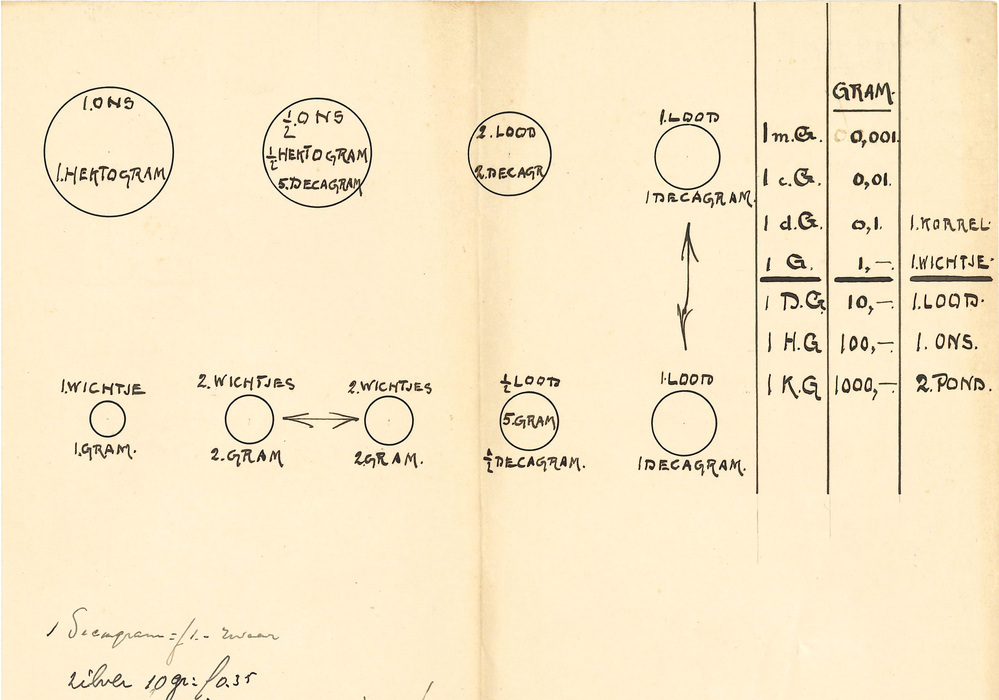 1.ONS
1.HEKTOGRAM
½.ONS
½ HEKTOGRAM
5.DECAGRAM
2.LOOD
2.DECAGR
1.LOOD
1 DECAGRAM.
1.WICHTJE
1.GRAM.
2.WICHTJES
2.GRAM
2.WICHTJES
2GRAM.
½ LOOD
5.GRAM
½ DECAGRAM.
1.LOOD
1 DECAGRAM.
GRAM.
1 m.G. 0,001.
1 c.G. 0,01.
1 d.G. 0,1. 1.KORREL.
1 G. 1,—. 1.WICHTJE.
1 D.G 10,—. 1.LOOD.
1 H.G 100,—. 1. ONS.
1 K.G 1000,—. 2.POND.
1 Decagram = f 1.- zwaar
zilver 10 gr = f 0.35